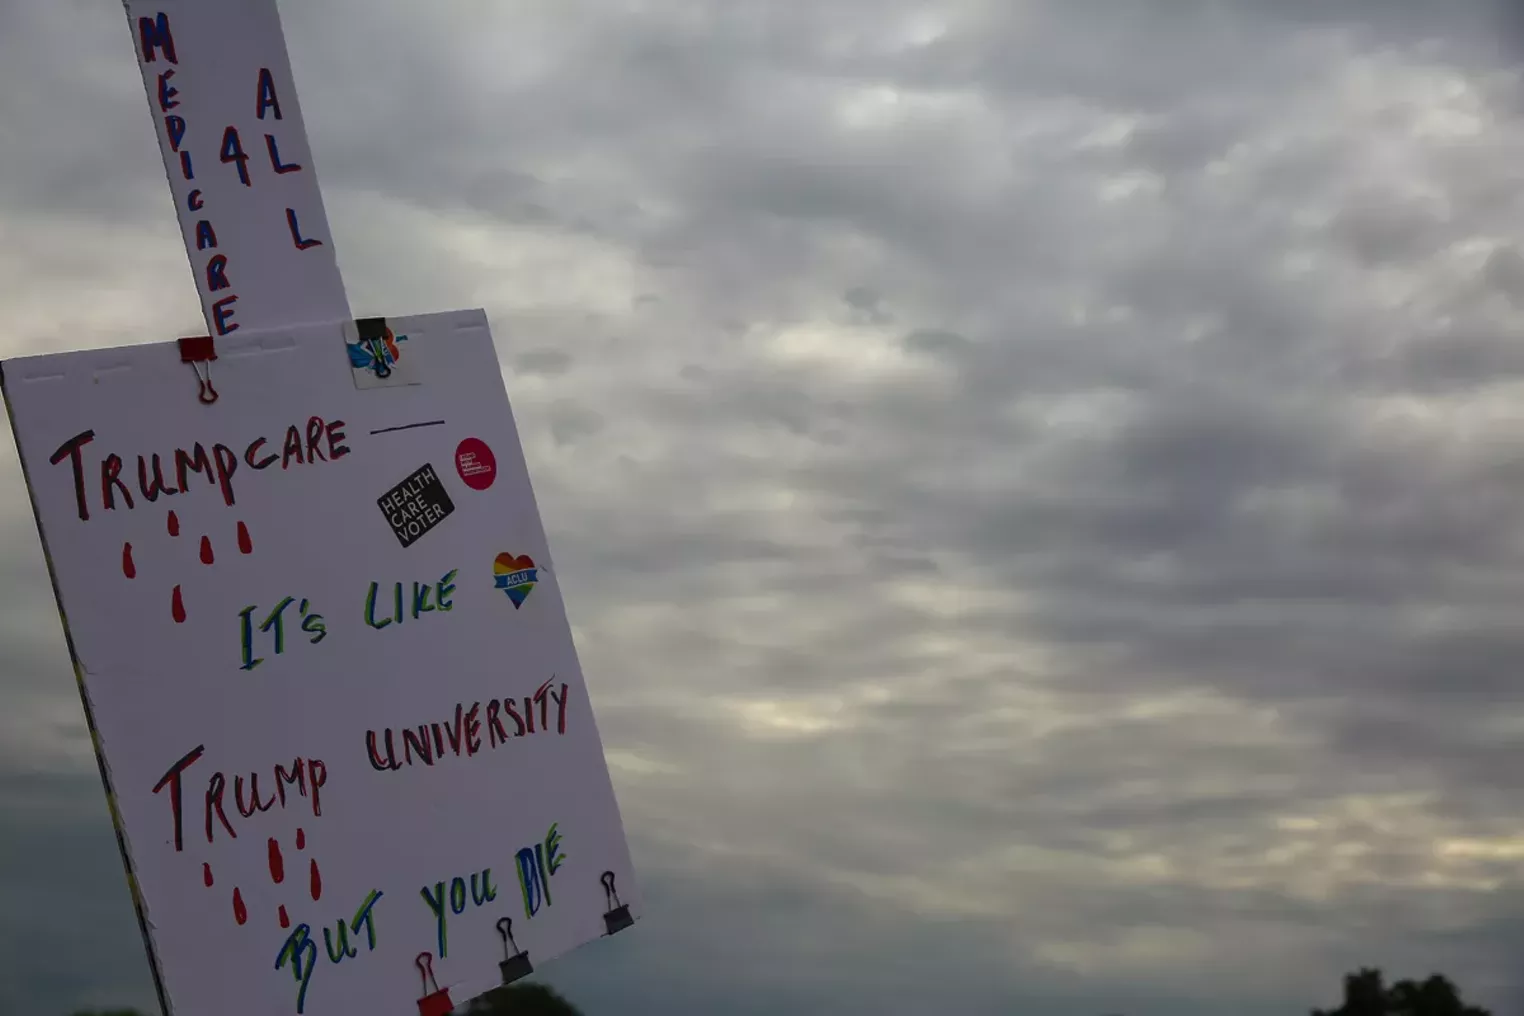 MEDICARE
4
ALL
TRUMPCARE —
HEALTH
CARE
VOTER
IT'S LIKE
ACLU
TRUMP UNIVERSITY
BUT YOU DIE